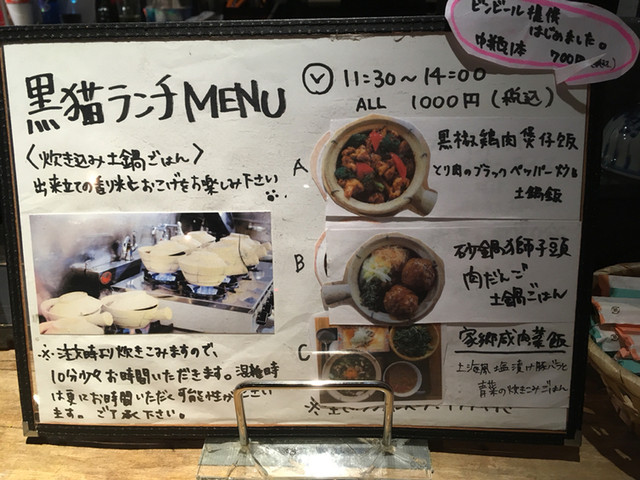 ビンビール提供
はじめました。
中瓶1本 700円(税込)
黒猫ランチMENU
11:30~14:00
ALL 1000円(税込)
〈炊き込み土鍋ごはん〉
出来立ての香り米とおこげをお楽しみ下さい
A
黒椒鶏肉煲仔飯
とり肉のブラックペッパー炒め
土鍋飯
B
砂鍋獅子頭
肉だんご
土鍋ごはん
C
家郷咸肉菜飯
上海風塩漬け豚バラと
青菜の炊きこみごはん
※ご注文時より炊きこみますので、
10分少々お時間いただきます。混雑時
は更にお時間いただく可能性がござい
ます。ご了承下さい。